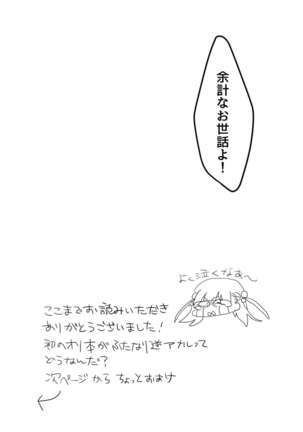 余計なお世話よ！
よく泣くなあ〜
ここまでお読みいただき
ありがとうございました！
初のオリ本がふたなり逆アカレって
どうなんだ？
次ページから ちょっとおまけ